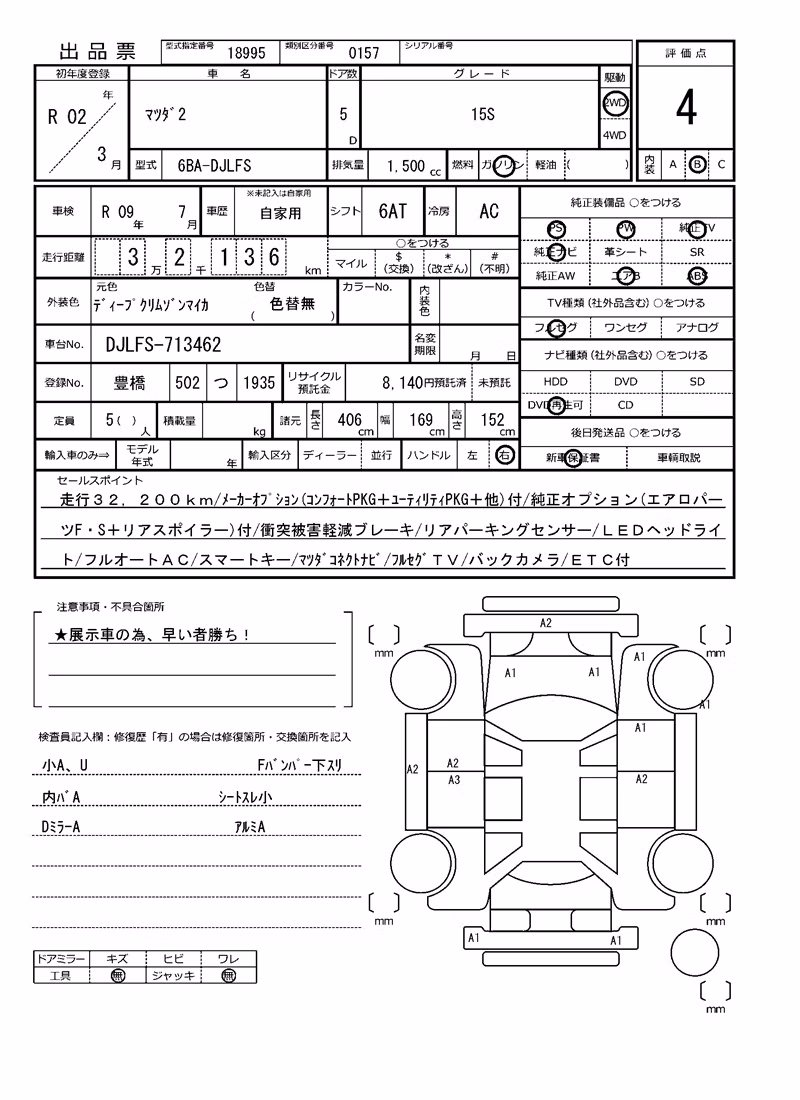 出品票 型式指定番号 18995 類別区分番号 0157 シリアル番号
評価点
初年度登録 車名 ドア数 グレード 駆動
R 02 年 3 月 マツダ2 5 D 15S 2WD 4WD
4
型式 6BA-DJLFS 排気量 1,500 cc 燃料 ガソリン 軽油 ( )
内装 A B C
車検 R 09 年 7 月 車歴 ※未記入は自家用 自家用 シフト 6AT 冷房 AC
走行距離 3 万 2 千 1 3 6 km ○をつける マイル $ (交換) * (改ざん) # (不明)
外装色 元色 ディープクリムゾンマイカ 色替 ( 色替無 ) カラーNo. 内装色
車台No. DJLFS-713462 名変期限 月 日
登録No. 豊橋 502 つ 1935 リサイクル預託金 8,140円預託済 未預託
定員 5( ) 人 積載量 kg 諸元 長さ 406 cm 幅 169 cm 高さ 152 cm
輸入車のみ⇒ モデル年式 年 輸入区分 ディーラー 並行 ハンドル 左 右
純正装備品 ○をつける
PS PW 純正TV
純正ナビ 革シート SR
純正AW エアB ABS
TV種類(社外品含む)○をつける
フルセグ ワンセグ アナログ
ナビ種類(社外品含む)○をつける
HDD DVD SD
DVD再生可 CD
後日発送品 ○をつける
新車保証書 車輌取説
セールスポイント
走行32,200km/メーカーオプション(コンフォートPKG+ユーティリティPKG+他)付/純正オプション(エアロパー
ツF・S+リアスポイラー)付/衝突被害軽減ブレーキ/リアパーキングセンサー/LEDヘッドライ
ト/フルオートAC/スマートキー/マツダコネクトナビ/フルセグTV/バックカメラ/ETC付
注意事項・不具合箇所
★展示車の為、早い者勝ち!
検査員記入欄:修復歴「有」の場合は修復箇所・交換箇所を記入
小A、U Fバンパー下スリ
内バA シートスレ小
DミラーA アルミA
ドアミラー キズ ヒビ ワレ
工具 無 ジャッキ 無
A2
mm mm
A1 A1 A1
A1
A1
A2 A2
A3 A2
mm mm
A1 A1
mm